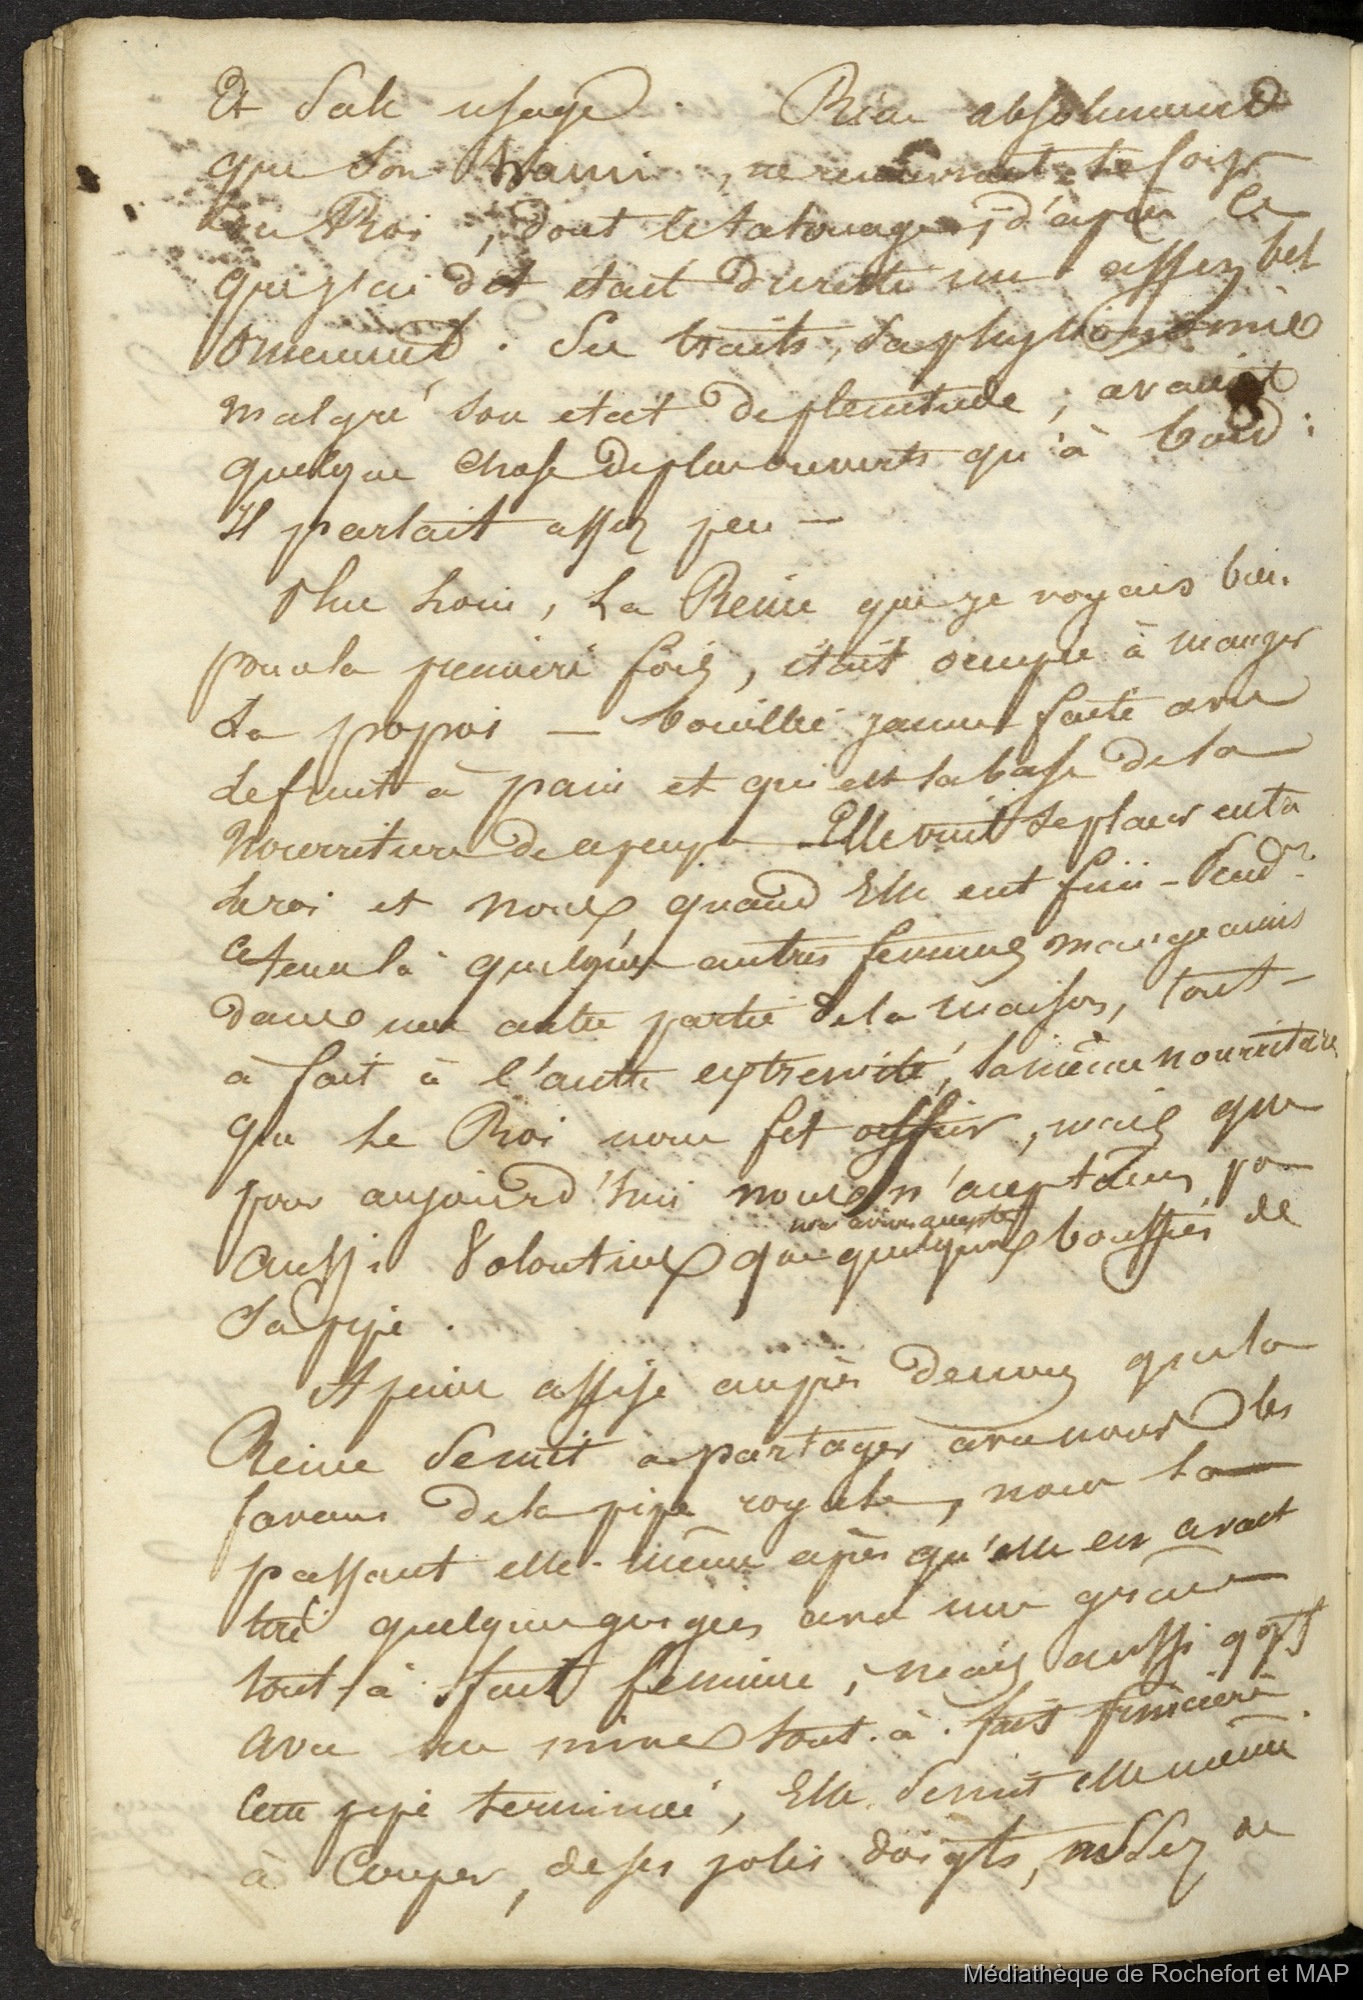 Et sale usage. Rien absolument
que son hami, ne recouvrait le corps
du Roi, dont le tatouage, d'après ce
que j'ai dit était du reste un assez bel
ornement. Ses traits, sa physionomie
malgré son etat de plenitude, avaient
quelque chose de plus ouverts qu'à bord;
Il parlait assez peu —
Plus loin, La Reine que je voyais bien
pour la premiere fois, était occupée à manger
La popoi — bouillie jaune faite avec
le fruit à pain et qui est la base de la
Nourriture de ce peuple Elle vint se placer entre
le roi et nous, quand Elle eut fini — Pend.t
ce tems là quelques autres femmes mangeaient
dans une autre partie de la maison, tout-
à fait à l'autre extremité, la même nourriture
que Le Roi nous fit offrir, mais que
pour aujourd'hui nous n'acceptames pas
aussi Volontiers que quelques bouffées de
nous avions acceptés
Sa pipe.
A peine assise auprès de nous que la
Reine se mit a partager avec nous les
faveurs de la pipe royale, nous la
passant elle-même après qu'elle en avait
tiré quelques gorgées avec une grace
tout-à-fait feminine, mais aussi qqfs
avec une mine tout-à-fait princière.
Cette pipe terminée, Elle se mit elle même
à Couper, de ses jolis doigts,